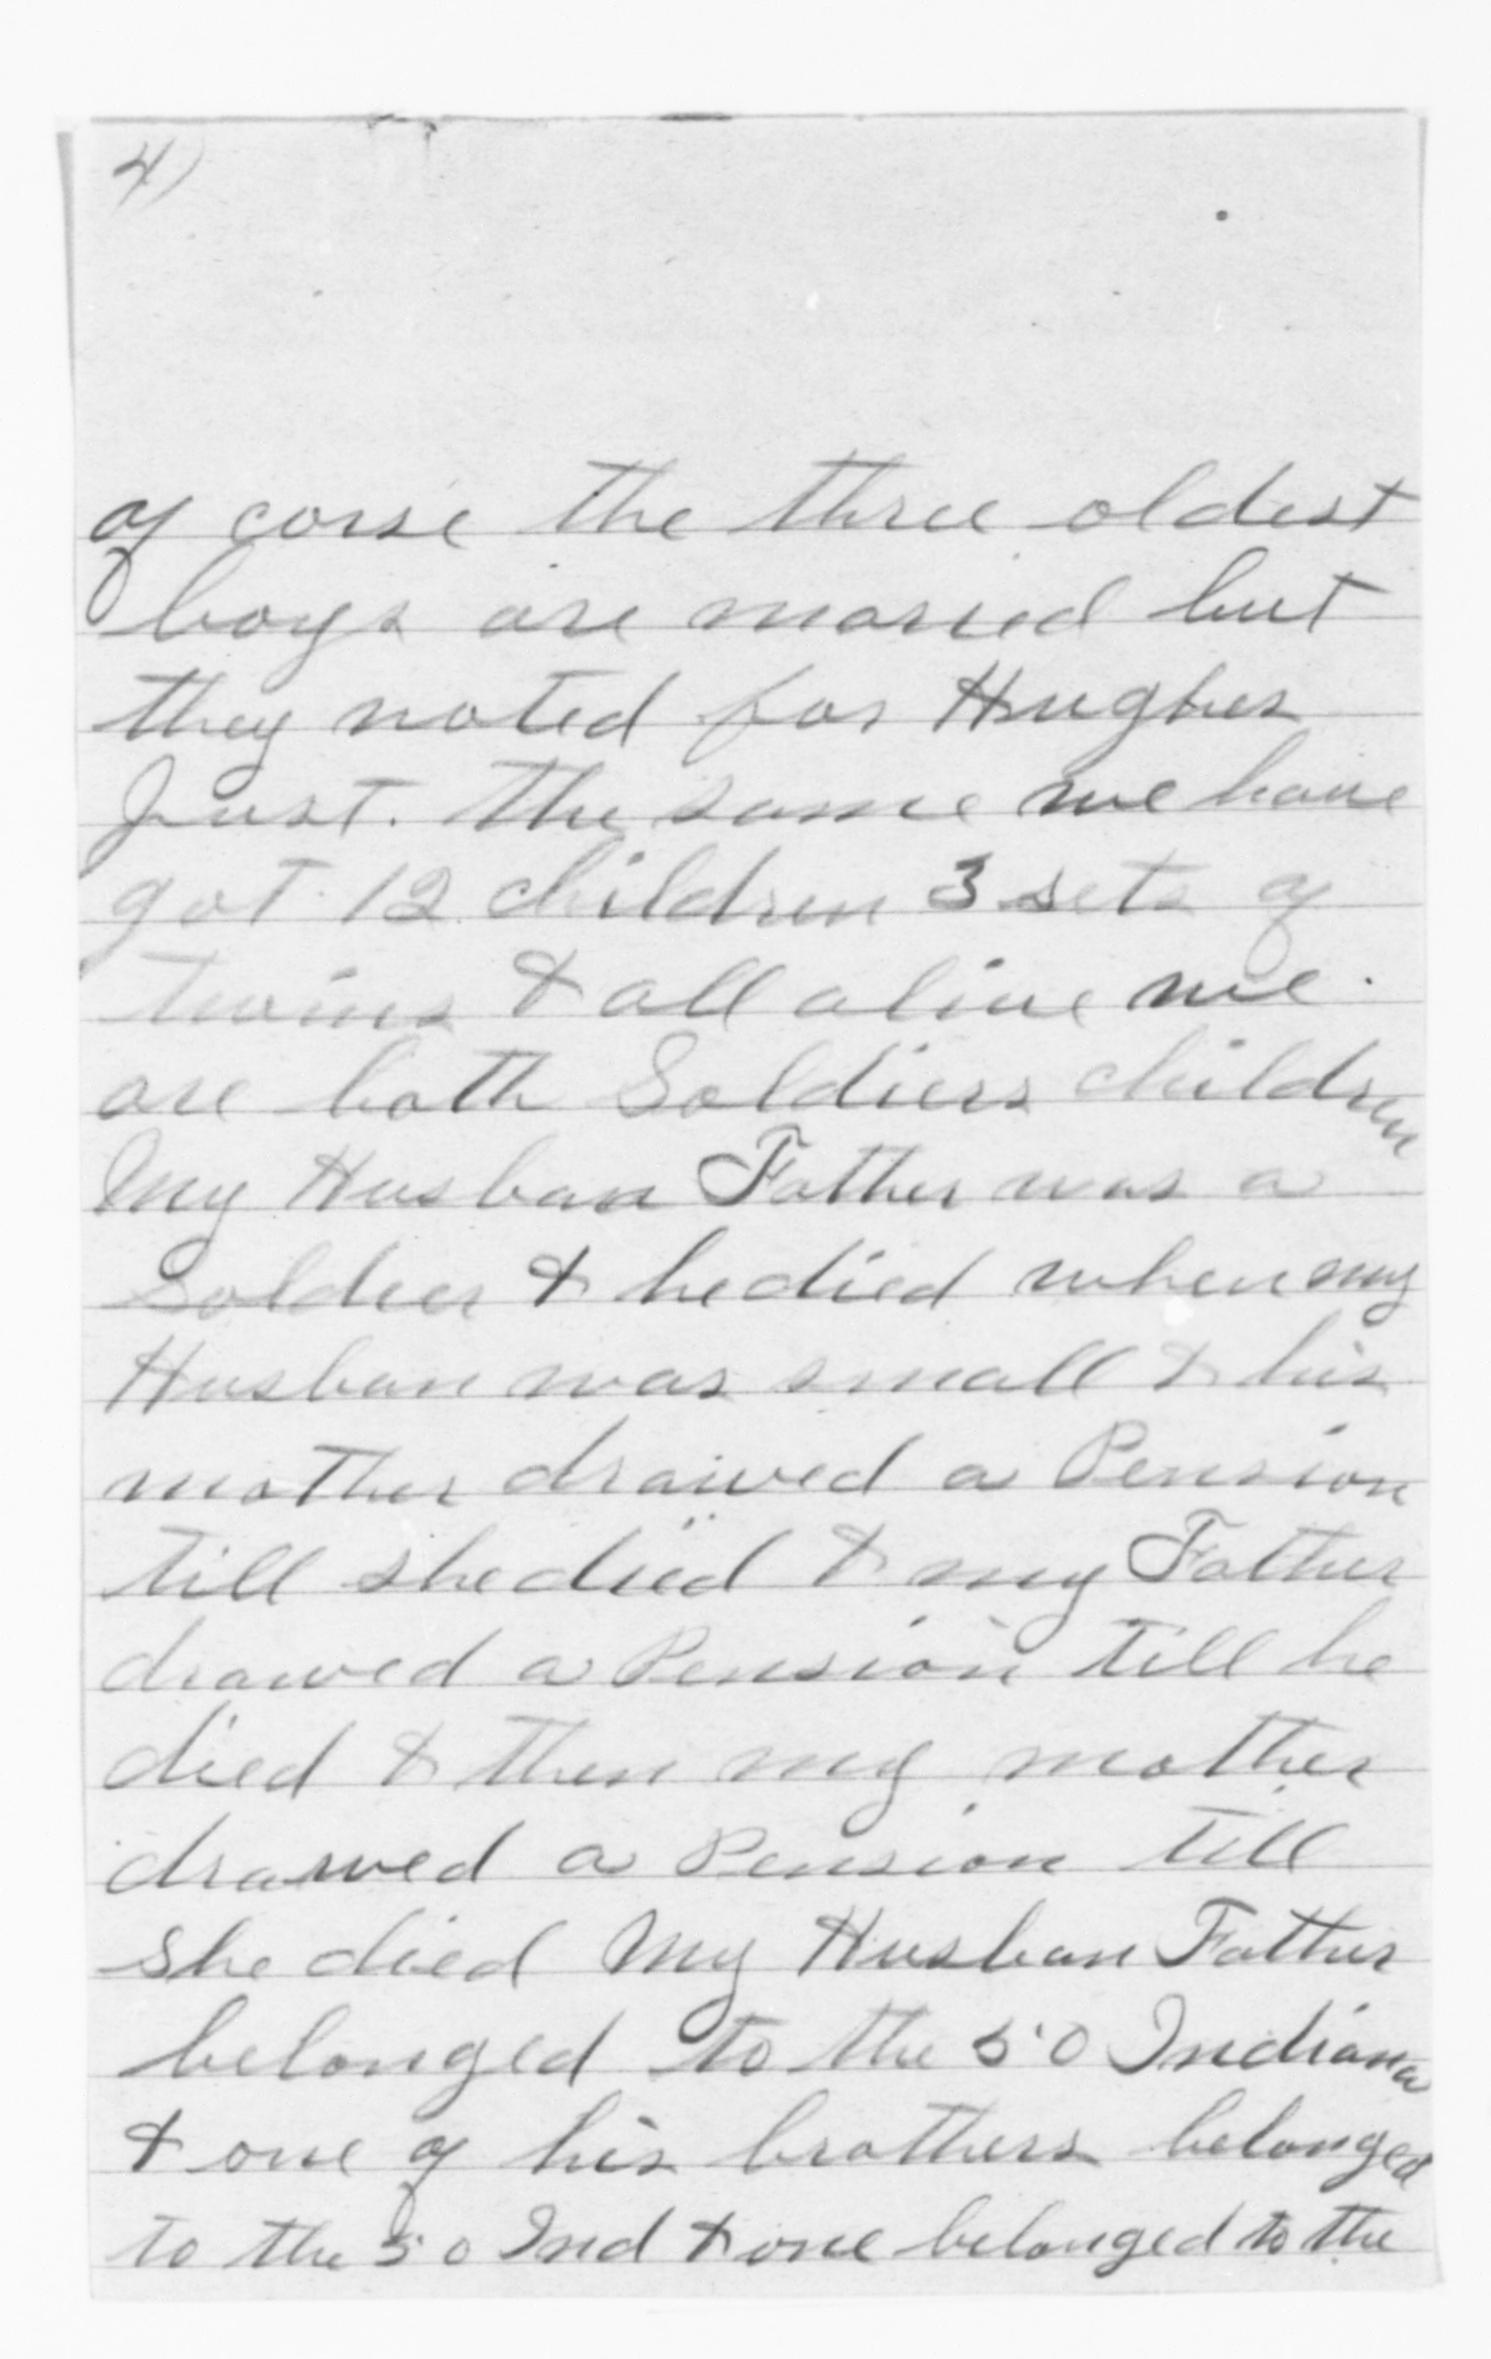 4)
of corse the three oldest
boys are maried but
they voted for Hughes
Just. the same we have
got 12 children 3 sets of
twins & all alive we
are both Soldiers children
My Husban Father was a
Soldier & he died when my
Husban was small & his
mother drawed a Pension
till she died & my Father
drawed a Pension till he
died & then my mother
drawed a Pension till
she died My Husban Father
belonged to the 50 Indiana
& one of his brothers belonged
to the 50 Ind & one belonged to the